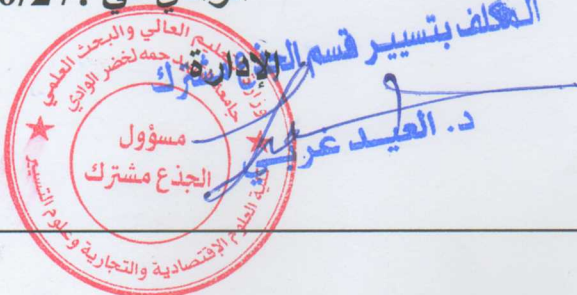 المكلف بتسيير قسم الجذع مشترك
الإدارة
د. العيد غربي
وزارة التعليم العالي والبحث العلمي
جامعة الشهيد حمه لخضر الوادي
مسؤول
الجذع مشترك
كلية العلوم الإقتصادية والتجارية وعلوم التسيير